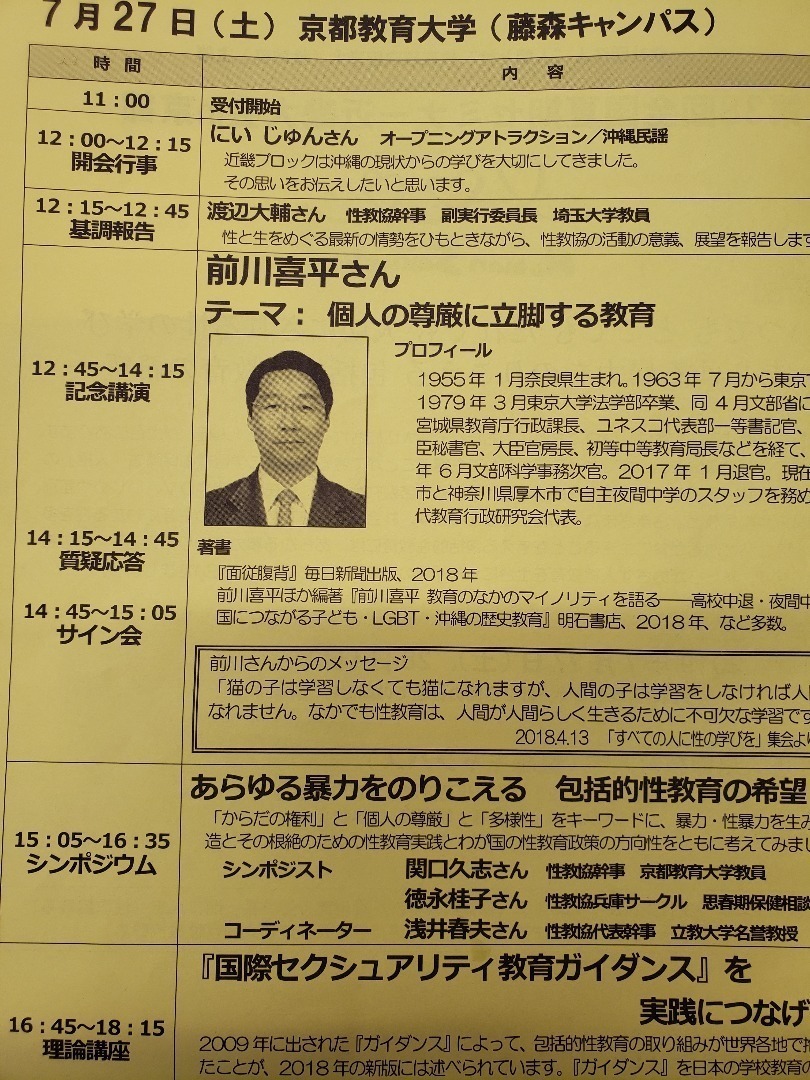 7月27日（土） 京都教育大学（藤森キャンパス）
時間 内容
11：00 受付開始
12：00～12：15 にい じゅんさん オープニングアトラクション／沖縄民謡
開会行事 近畿ブロックは沖縄の現状からの学びを大切にしてきました。
その思いをお伝えしたいと思います。
12：15～12：45 渡辺大輔さん 性教協幹事 副実行委員長 埼玉大学教員
基調報告 性と生をめぐる最新の情勢をひもときながら、性教協の活動の意義、展望を報告します
前川喜平さん
テーマ： 個人の尊厳に立脚する教育
12：45～14：15
記念講演
プロフィール
1955年1月奈良県生まれ。1963年7月から東京で
1979年3月東京大学法学部卒業、同4月文部省に
宮城県教育庁行政課長、ユネスコ代表部一等書記官、
臣秘書官、大臣官房長、初等中等教育局長などを経て、
年6月文部科学事務次官。2017年1月退官。現在
市と神奈川県厚木市で自主夜間中学のスタッフを務め
代教育行政研究会代表。
14：15～14：45
質疑応答
14：45～15：05
サイン会
著書
『面従腹背』毎日新聞出版、2018年
前川喜平ほか編著『前川喜平 教育のなかのマイノリティを語る――高校中退・夜間中
国につながる子ども・LGBT・沖縄の歴史教育』明石書店、2018年、など多数。
前川さんからのメッセージ
「猫の子は学習しなくても猫になれますが、人間の子は学習をしなければ人間
なれません。なかでも性教育は、人間が人間らしく生きるために不可欠な学習です
2018.4.13 「すべての人に性の学びを」集会より
15：05～16：35
シンポジウム
あらゆる暴力をのりこえる 包括的性教育の希望
「からだの権利」と「個人の尊厳」と「多様性」をキーワードに、暴力・性暴力を生み
造とその根絶のための性教育実践とわが国の性教育政策の方向性をともに考えてみまし
シンポジスト 関口久志さん 性教協幹事 京都教育大学教員
徳永桂子さん 性教協兵庫サークル 思春期保健相談
コーディネーター 浅井春夫さん 性教協代表幹事 立教大学名誉教授
16：45～18：15
理論講座
『国際セクシュアリティ教育ガイダンス』を
実践につなげ
2009年に出された『ガイダンス』によって、包括的性教育の取り組みが世界各地で
たことが、2018年の新版には述べられています。『ガイダンス』を日本の学校教育の